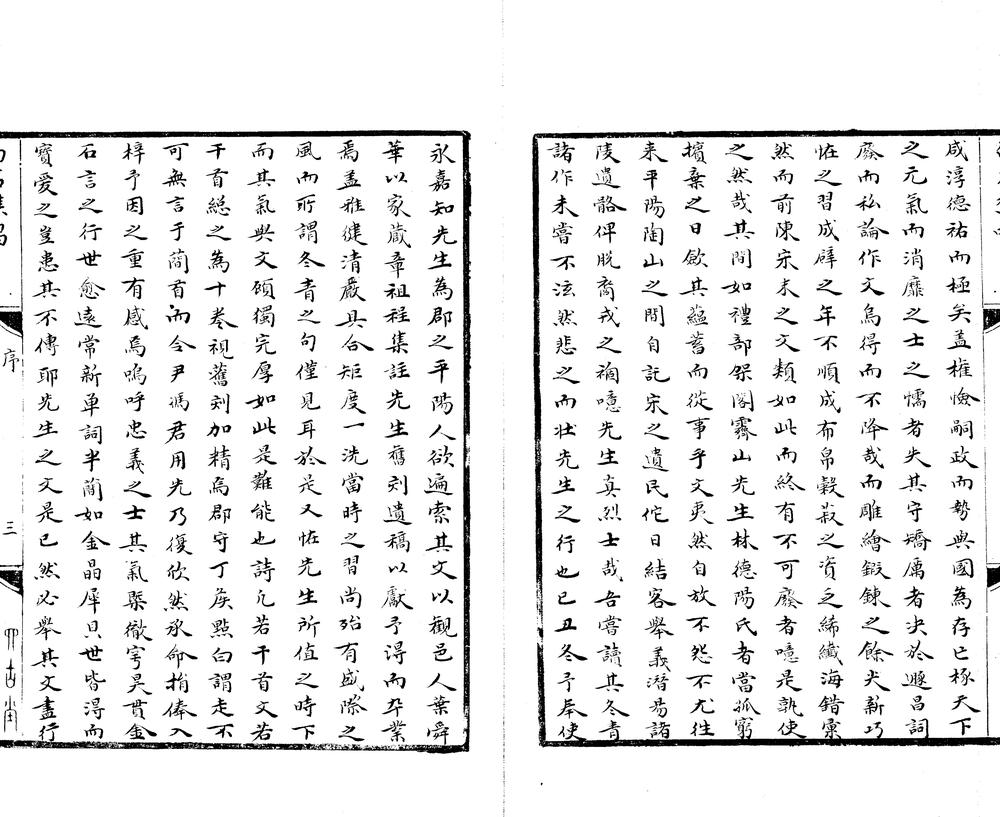 咸淳德祐而極矣蓋權憸嗣政而勢與國為存亡椓天下
之元氣而消靡之士之懦者失其守矯厲者決於趣昌詞
廢而私論作文烏得而不降哉而雕繪鍛鍊之餘尖新巧
恠之習成辟之年不順成布帛穀菽之資乏絺纖海錯霝
然而前陳宋末之文類如此而終有不可廢者噫是孰使
之然哉其間如禮部架閣霽山先生林德陽氏者當孤窮
擯棄之日歛其藴蓄而從事乎文夷然自放不怨不尤徃
来平陽陶山之間自託宋之遺民佗日結客舉義潛易諸
陵遺骼俾脫裔戎之禍噫先生真烈士哉吾嘗讀其冬青
諸作未嘗不泫然悲之而壮先生之行也已丑冬予奉使
永嘉知先生為郡之平陽人欲遍索其文以觀邑人葉舜
華以家蔵章祖程集註先生舊刻遺稿以獻予淂而卒業
焉盖雅健清嚴具合矩度一洗當時之習尚殆有盛際之
風而所謂冬青之句僅見耳於是又恠先生所值之時下
而其氣與文碩獨完厚如此是難能也詩凡若干首文若
干首緫之為十卷視舊刻加精焉郡守丁矦㸃白謂走不
可無言于蕳首而令尹馮君用先乃復欣然承命捐俸入
梓予因之重有感焉嗚呼忠義之士其氣槩徹穹昊貫金
石言之行世愈遠常新单詞半蕳如金晶犀貝世皆淂而
寳愛之豈患其不傳耶先生之文是已然必舉其文盡行
序
三